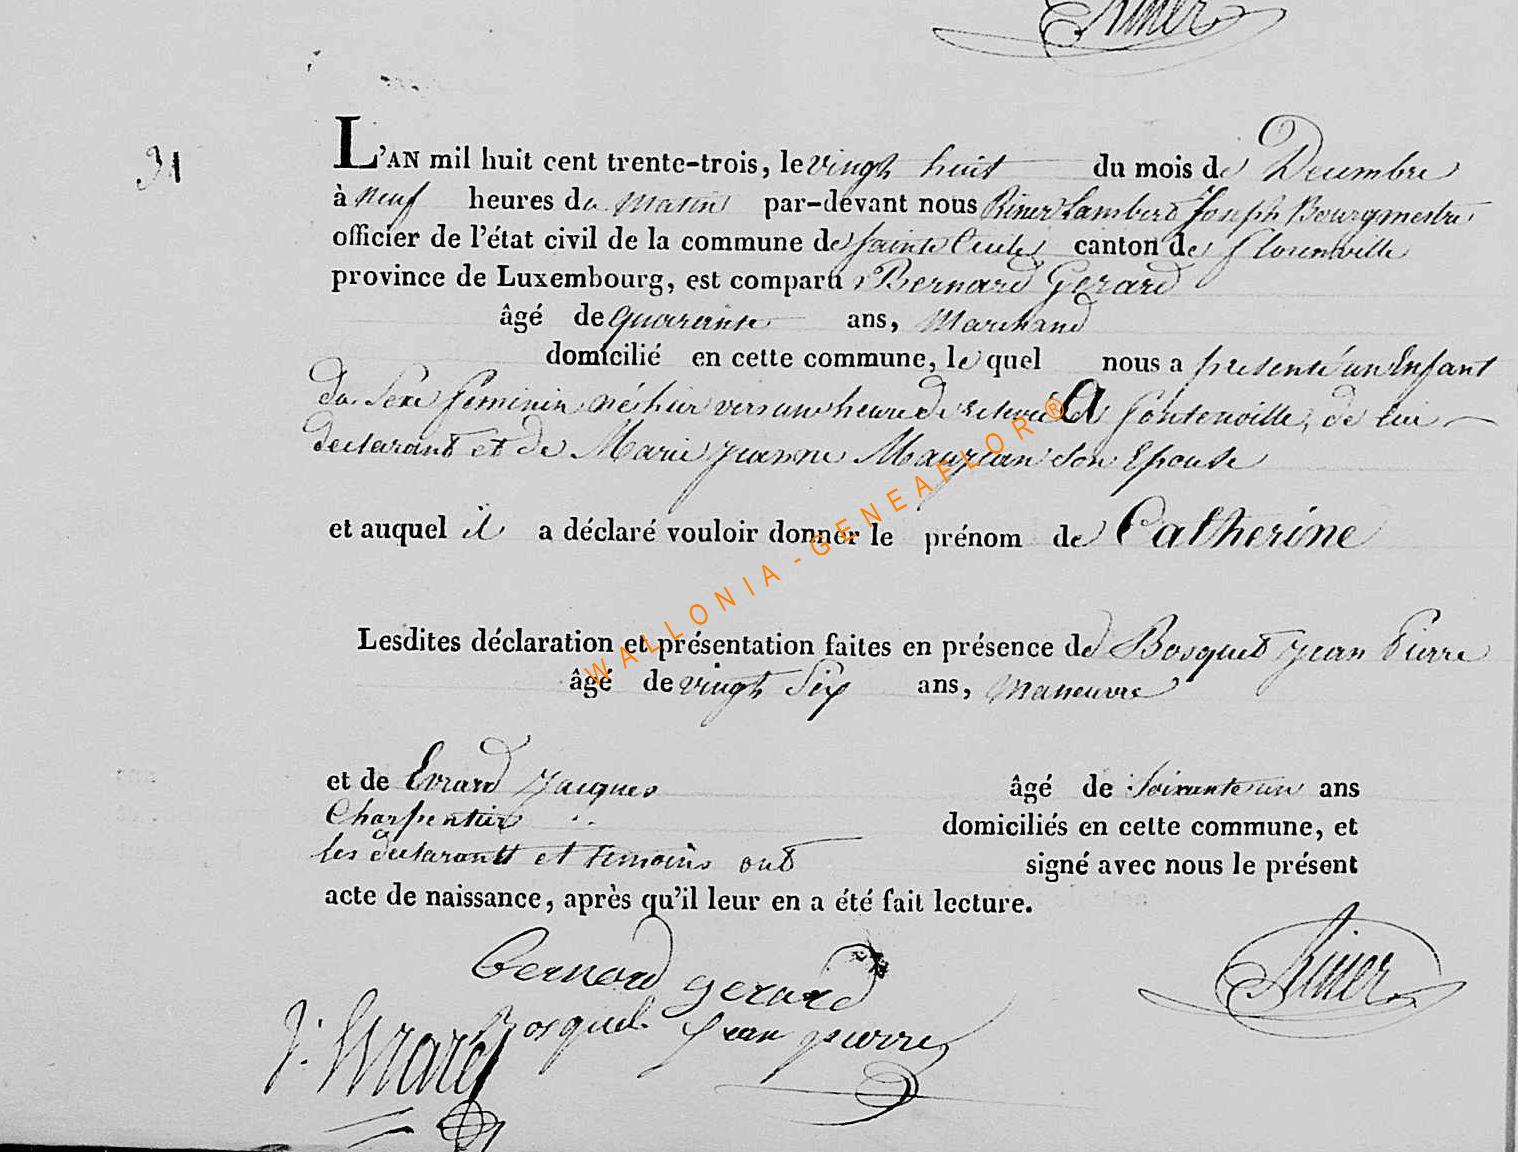 Riner
31
L'AN mil huit cent trente-trois, le vingt huit du mois de Decembre
à neuf heures du matin par-devant nous Riner Lambert Joseph Bourgmestre
officier de l'état civil de la commune de Sainte Cecile canton de Florenville
province de Luxembourg, est comparu Bernard Gerard
âgé de quarante ans, Marchand
domicilié en cette commune, le quel nous a presenté un Enfant
du Sexe feminin né hier vers une heure de relevée A fontenoille, de lui
declarant et de Marie jeanne Maujean son Epouse
et auquel il a déclaré vouloir donner le prénom de Catherine
Lesdites déclaration et présentation faites en présence de Bosquet jean Pierre
âgé de vingt Six ans, maneuvre
et de Evrard jacques âgé de Soixante un ans
Charpentier domiciliés en cette commune, et
les declarant et temoins ont signé avec nous le présent
acte de naissance, après qu'il leur en a été fait lecture.
bernard gerard
Riner
J. Evrard Bosquet jean pierre
WALLONIA - GENEAFLOR ®